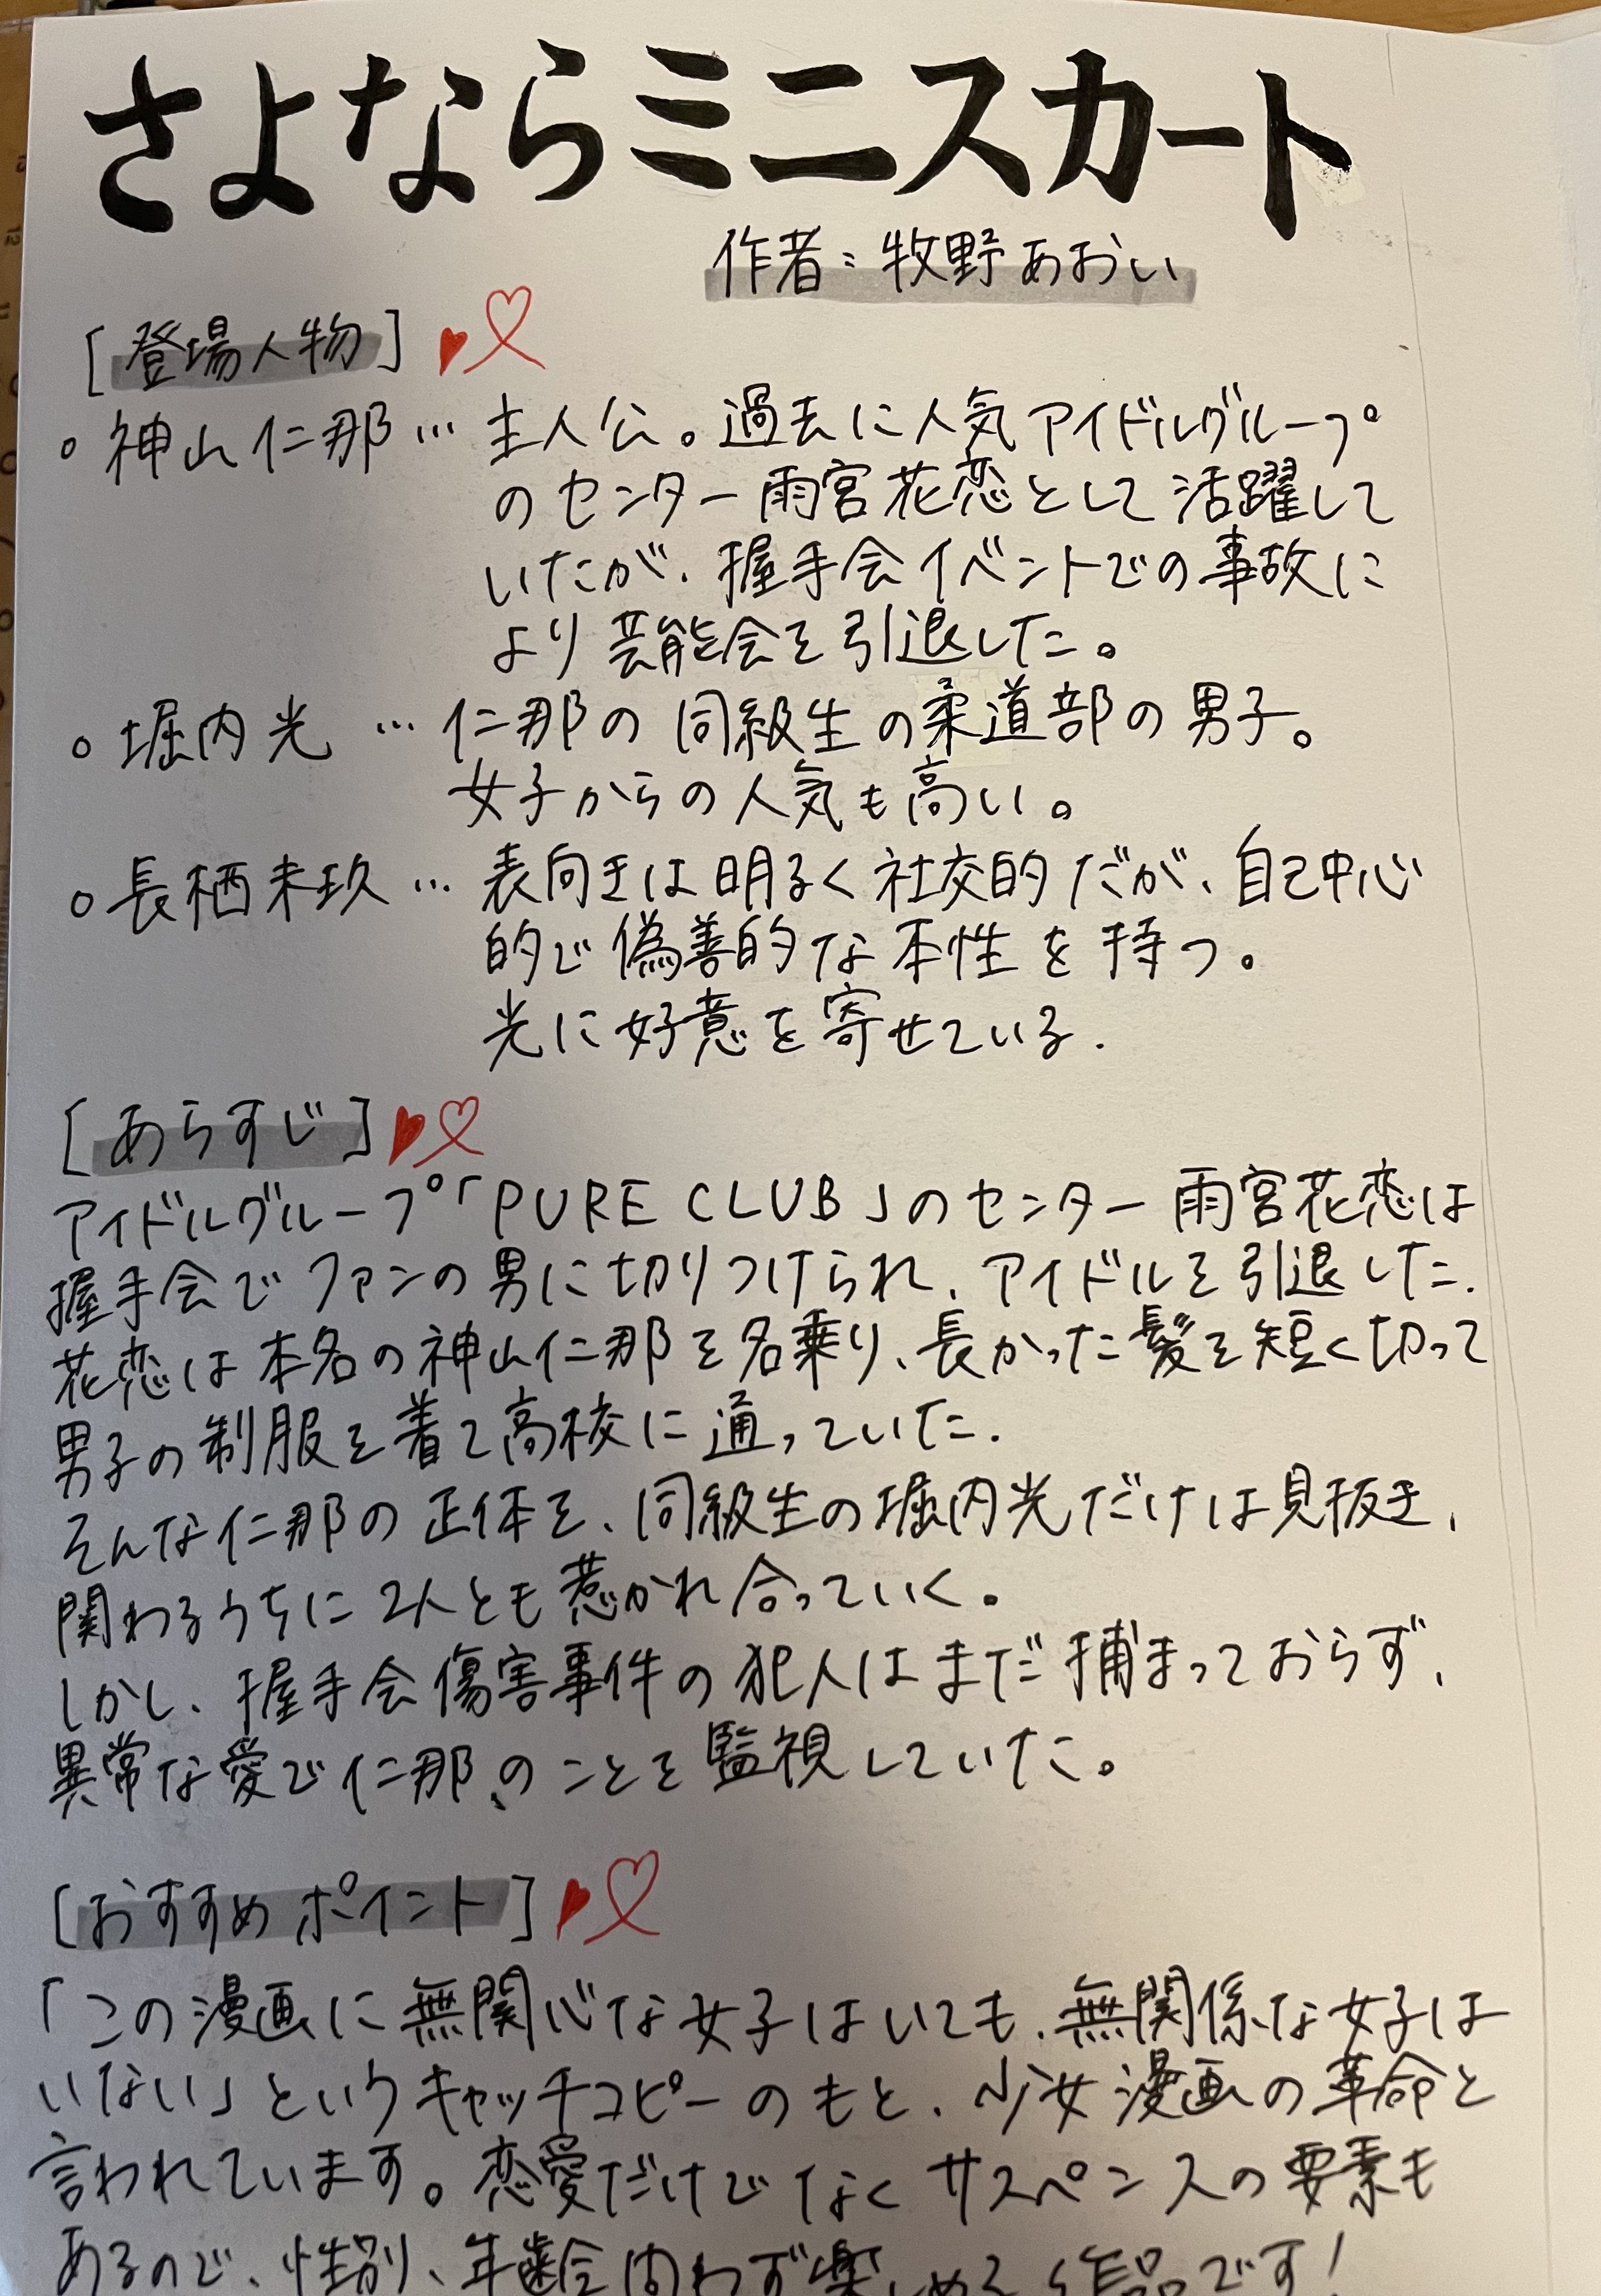 さよならミニスカート
作者：牧野あおい
[登場人物]
○神山仁那…主人公。過去に人気アイドルグループ
のセンター雨宮花恋として活躍して
いたが、握手会イベントでの事故に
より芸能会を引退した。
○堀内光…仁那の同級生の柔道部の男子。
女子からの人気も高い。
○長栖未玖…表向きは明るく社交的だが、自己中心
的で偽善的な本性を持つ。
光に好意を寄せている.
[あらすじ]
アイドルグループ「PURE CLUB」のセンター雨宮花恋は
握手会でファンの男に切りつけられ、アイドルを引退した.
花恋は本名の神山仁那を名乗り、長かった髪を短く切って
男子の制服を着て高校に通っていた.
そんな仁那の正体を、同級生の堀内光だけは見抜き、
関わるうちに2人とも惹かれ合っていく。
しかし、握手会傷害事件の犯人はまだ捕まっておらず、
異常な愛で仁那のことを監視していた。
[おすすめポイント]
「この漫画に無関心な女子はいても、無関係な女子は
いない」というキャッチコピーのもと、少女漫画の革命と
言われています。恋愛だけでなくサスペンスの要素も
あるので、性別、年齢問わず楽しめる作品です！